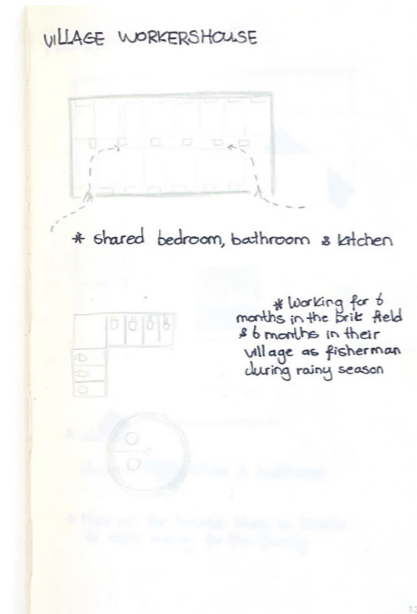 VILLAGE WORKERSHOUSE
* shared bedroom, bathroom & kitchen
* Working for 6
months in the brik field
& 6 months in their
village as fisherman
during rainy season